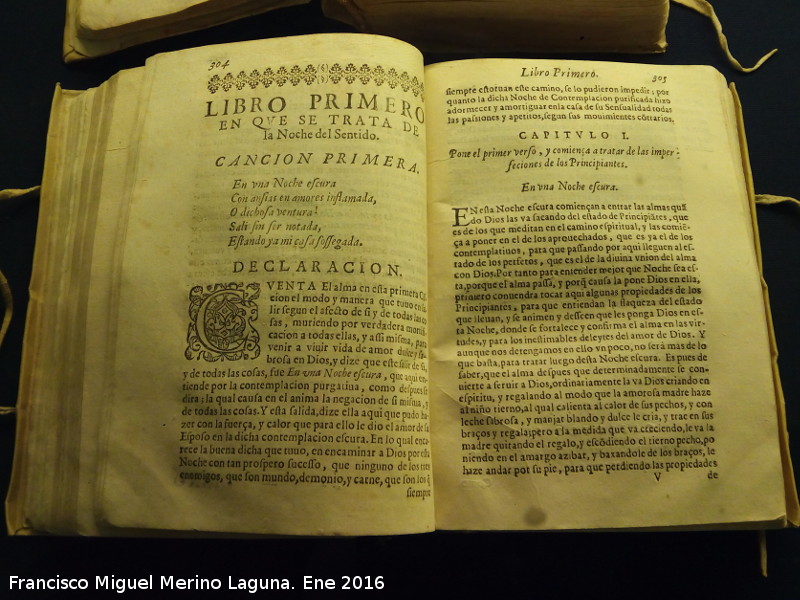 304
LIBRO PRIMERO
EN QVE SE TRATA DE
la Noche del Sentido.
CANCION PRIMERA.
En vna Noche eſcura
Con anſias en amores inflamada,
O dichoſa ventura!
Sali ſin ſer notada,
Eſtando ya mi caſa ſoſſegada.
DECLARACION.
CVENTA El alma en eſta primera Cã
cion el modo y manera que tuuo en ſa
lir ſegun el afecto de ſi y de todas las co
ſas, muriendo por verdadera morti
cacion a todas ellas, y a ſsi miſma, para
venir a viuir vida de amor dulce y ſa
broſa en Dios, y dize que eſte ſalir de ſi,
y de todas las coſas, fue En vna Noche eſcura, que aqui en
tiende por la contemplacion purgatiua, como deſpues ſe
dira: la qual cauſa en el anima la negacion de ſi miſma, y
de todas las coſas. Y eſta ſalida, dize ella aqui que pudo ha
zer con la fuerça, y calor que para ello le dio el amor de ſu
Eſpoſo en la dicha contemplacion eſcura. En lo qual enca
rece la buena dicha que tuuo, en encaminar a Dios por eſta
Noche con tan proſpero ſuceſſo, que ninguno de los tres
enemigos, que ſon mundo, demonio, y carne, que ſon los q̃
ſiempre
Libro Primero. 305
ſiempre eſtoruan eſte camino, ſe lo pudieron impedir: por
quanto la dicha Noche de Contemplacion purificada hizo
adormecer y amortiguar en la caſa de ſu Senſualidad todas
las paſsiones y apetitos, ſegun ſus mouimientos cõtrarios.
CAPITVLO I.
Pone el primer verſo, y comiença a tratar de las imper-
feciones de los Principiantes.
En vna Noche eſcura.
EN eſta Noche eſcura comiençan a entrar las almas quã
do Dios las va ſacando del eſtado de Principiãtes, que
es de los que meditan en el camino eſpiritual, y las comiẽ-
ça a poner en el de los aprouechados, que es ya el de los
contemplatiuos, para que paſſando por aqui lleguen al eſ-
tado de los perfetos, que es el de la diuina vnion del alma
con Dios. Por tanto para entender mejor que Noche ſea eſ-
ta, porque el alma paſſa, y porq̃ cauſa la pone Dios en ella,
primero conuendra tocar aqui algunas propiedades de los
Principiantes, para que entiendan la flaqueza del eſtado
que lleuan, y ſe animen y deſſeen que les ponga Dios en eſ-
ta Noche, donde ſe fortalece y confirma el alma en las vir-
tudes, y para los ineſtimables deleytes del amor de Dios. Y
aunque nos detengamos en ello vn poco, no ſerà mas de lo
que baſta, para tratar luego deſta Noche eſcura. Es pues de
ſaber, que el alma deſpues que determinadamente ſe con-
uierte a ſeruir a Dios, ordinariamente la và Dios criando en
eſpiritu, y regalando al modo que la amoroſa madre haze
al niño tierno, al qual calienta al calor de ſus pechos, y con
leche ſabroſa, y manjar blando y dulce le cria, y trae en ſus
braços y regala: pero a la medida que va creciendo, le va la
madre quitando el regalo, y eſcõdiendo el tierno pecho, po
niendo en el amargo azibar, y baxandole de los braços, le
haze andar por ſu pie, para que perdiendo las propiedades
V de
Francisco Miguel Merino Laguna. Ene 2016